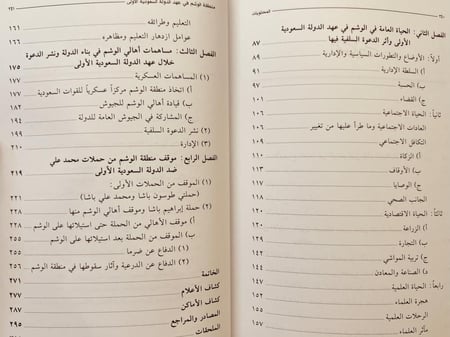 ٢٤٠
المحتويات
الفصل الثاني: الحياة العامة في الوشم في عهد الدولة السعودية
الأولى وأثر الدعوة السلفية فيها ٨٧
أولاً: الأوضاع والتطورات السياسية والإدارية ٨٩
أ) السلطة الإدارية
ب) الحسبة ٩٧
ج) القضاء ١٠١
ثانياً: الحياة الاجتماعية ١٠٧
العادات الاجتماعية وما طرأ عليها من تغيير ١٠٧
التكافل الاجتماعي
أ) الزكاة
ب) الأوقاف
ج) الوصايا
الجانب الصحي
ثالثاً: الحياة الاقتصادية
أ) الزراعة
ب) التجارة
ج) تربية المواشي ١٤٢
د) الصناعة والمعادن ١٤٤
رابعاً: الحياة العلمية ١٤٧
هجرة العلماء
الرحلات العلمية
مآثر العلماء ١٥٧
منطقة الوشم في عهد الدولة السعودية الأولى
٢٤١
التعليم وطرائقه ١٦١
عوامل ازدهار التعليم ومظاهره ١٦٦
الفصل الثالث: مساهمات أهالي الوشم في بناء الدولة ونشر الدعوة
خلال عهد الدولة السعودية الأولى ١٧٥
(١) المساهمات العسكرية ١٧٧
أ) اتخاذ منطقة الوشم مركزاً عسكرياً للقوات السعودية ١٧٧
ب) قيادة أهالي الوشم للجيوش ١٨٢
ج) المشاركة في الجيوش العامة للدولة ١٩٣
(٢) نشر الدعوة السلفية ١٩٩
(٣) الإدارة ٢١٠
الفصل الرابع: موقف منطقة الوشم من حملات محمد علي
ضد الدولة السعودية الأولى ٢١٩
(١) الموقف من الحملات الأولى:
(حملتي طوسون باشا ومحمد علي باشا) ٢٢١
(٢) حملة إبراهيم باشا وموقف أهالي الوشم منها ٢٢٨
أ) موقف الأهالي من الحملة حتى استيلائها على الوشم
ب) الموقف من الحملة بعد استيلائها على الوشم ٢٥٥
(١) الدفاع عن ضرما ٢٥٥
(٢) الدفاع عن الدرعية وآثار سقوطها في منطقة الوشم ٢٥٧
الخاتمة
كشاف الأعلام ٢٧١
كشاف الأماكن ٢٨٧
المصادر والمراجع ٢٩٥
الملحقات